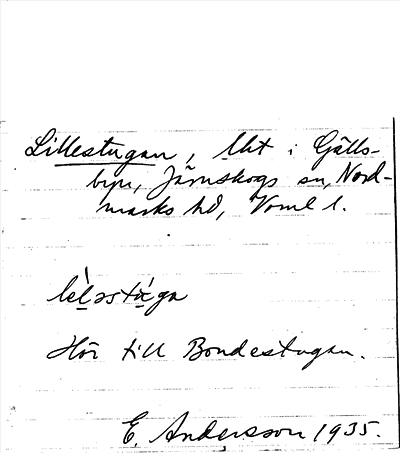 Lillestugan, lht i Gälls-
byn, Järnskogs sn, Nord-
marks hd, Vorml l.
Hör till Bondestugan.
E. Andersson 1935.